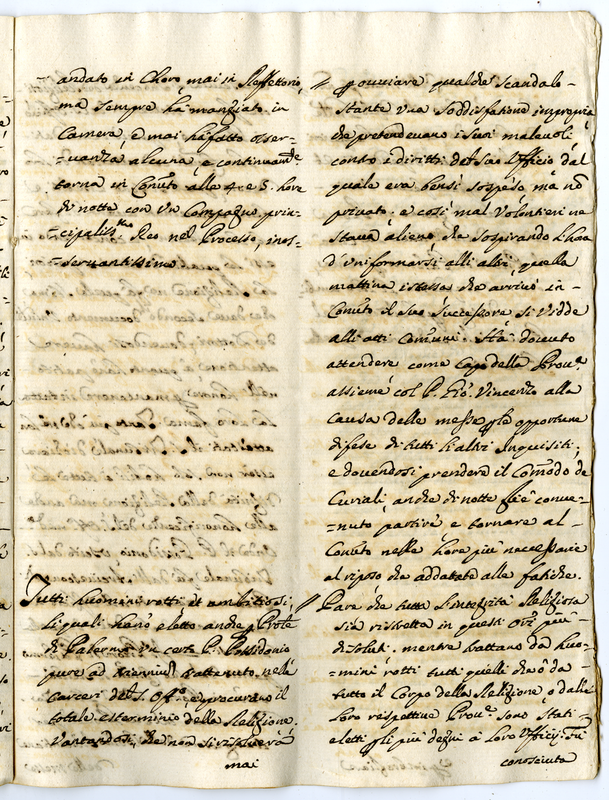 andato in Choro, mai in Reffettorio,
ma sempre hà mangiato in
Camera, e mai hà fatto osser-
=uanza alcuna, e continuam.te
torna in Conu.to alla 4. e 5. hore
di notte con vn Compagno prin-
=cipaliss.mo Reo nel Processo, inos-
=seruantissimo
Tutti huomini rotti et ambitiosi,
li quali hano eletto anche Prou.le
di Palermo vn certo P. Possidonio
pure ad triennium trattenuto nelle
Carceri del S. Off.o, e procurano il
totale esterminio della Religione.
Vantandosi, che non si risoluerà
mai
// p ouuiare qualche scandalo
stante vna soddisfatione impropria
che pretendeuano i suoi maleuoli
contro i diritti del suo Vfficio dal
quale era bensì sospeso, mà nõ
priuato. e così mal Volontieri ne
staua alieno che sospirando l'hora
d'vniformarsi alli altri, quella
mattina istessa che arriuò in
Conu.to il suo Successore si vidde
alli atti Comuni. Hà douuto
attendere come Capo della Prou.a
assieme col P. Gio. Vincenzo alla
Causa delle messe p le opportune
difese di tutti li altri Inquisiti;
e douendosi prendere il Comõdo de
Curiali, anche di notte li è conue-
=nuto partire e tornare al
Conu.to nelle hore più necessarie
al riposo che addattate alle fatiche.
// Pare che tutta l'integrità Religiosa
sia ristretta in questi Ori più
disoluti. mentre trattano da huo-
=mini rotti tutti quelli che ò da
tutto il Corpo della Religione, ò dalle
loro respettiue Prou.e sono stati
eletti p li più degni à loro Vfficij. Si
conosciuta